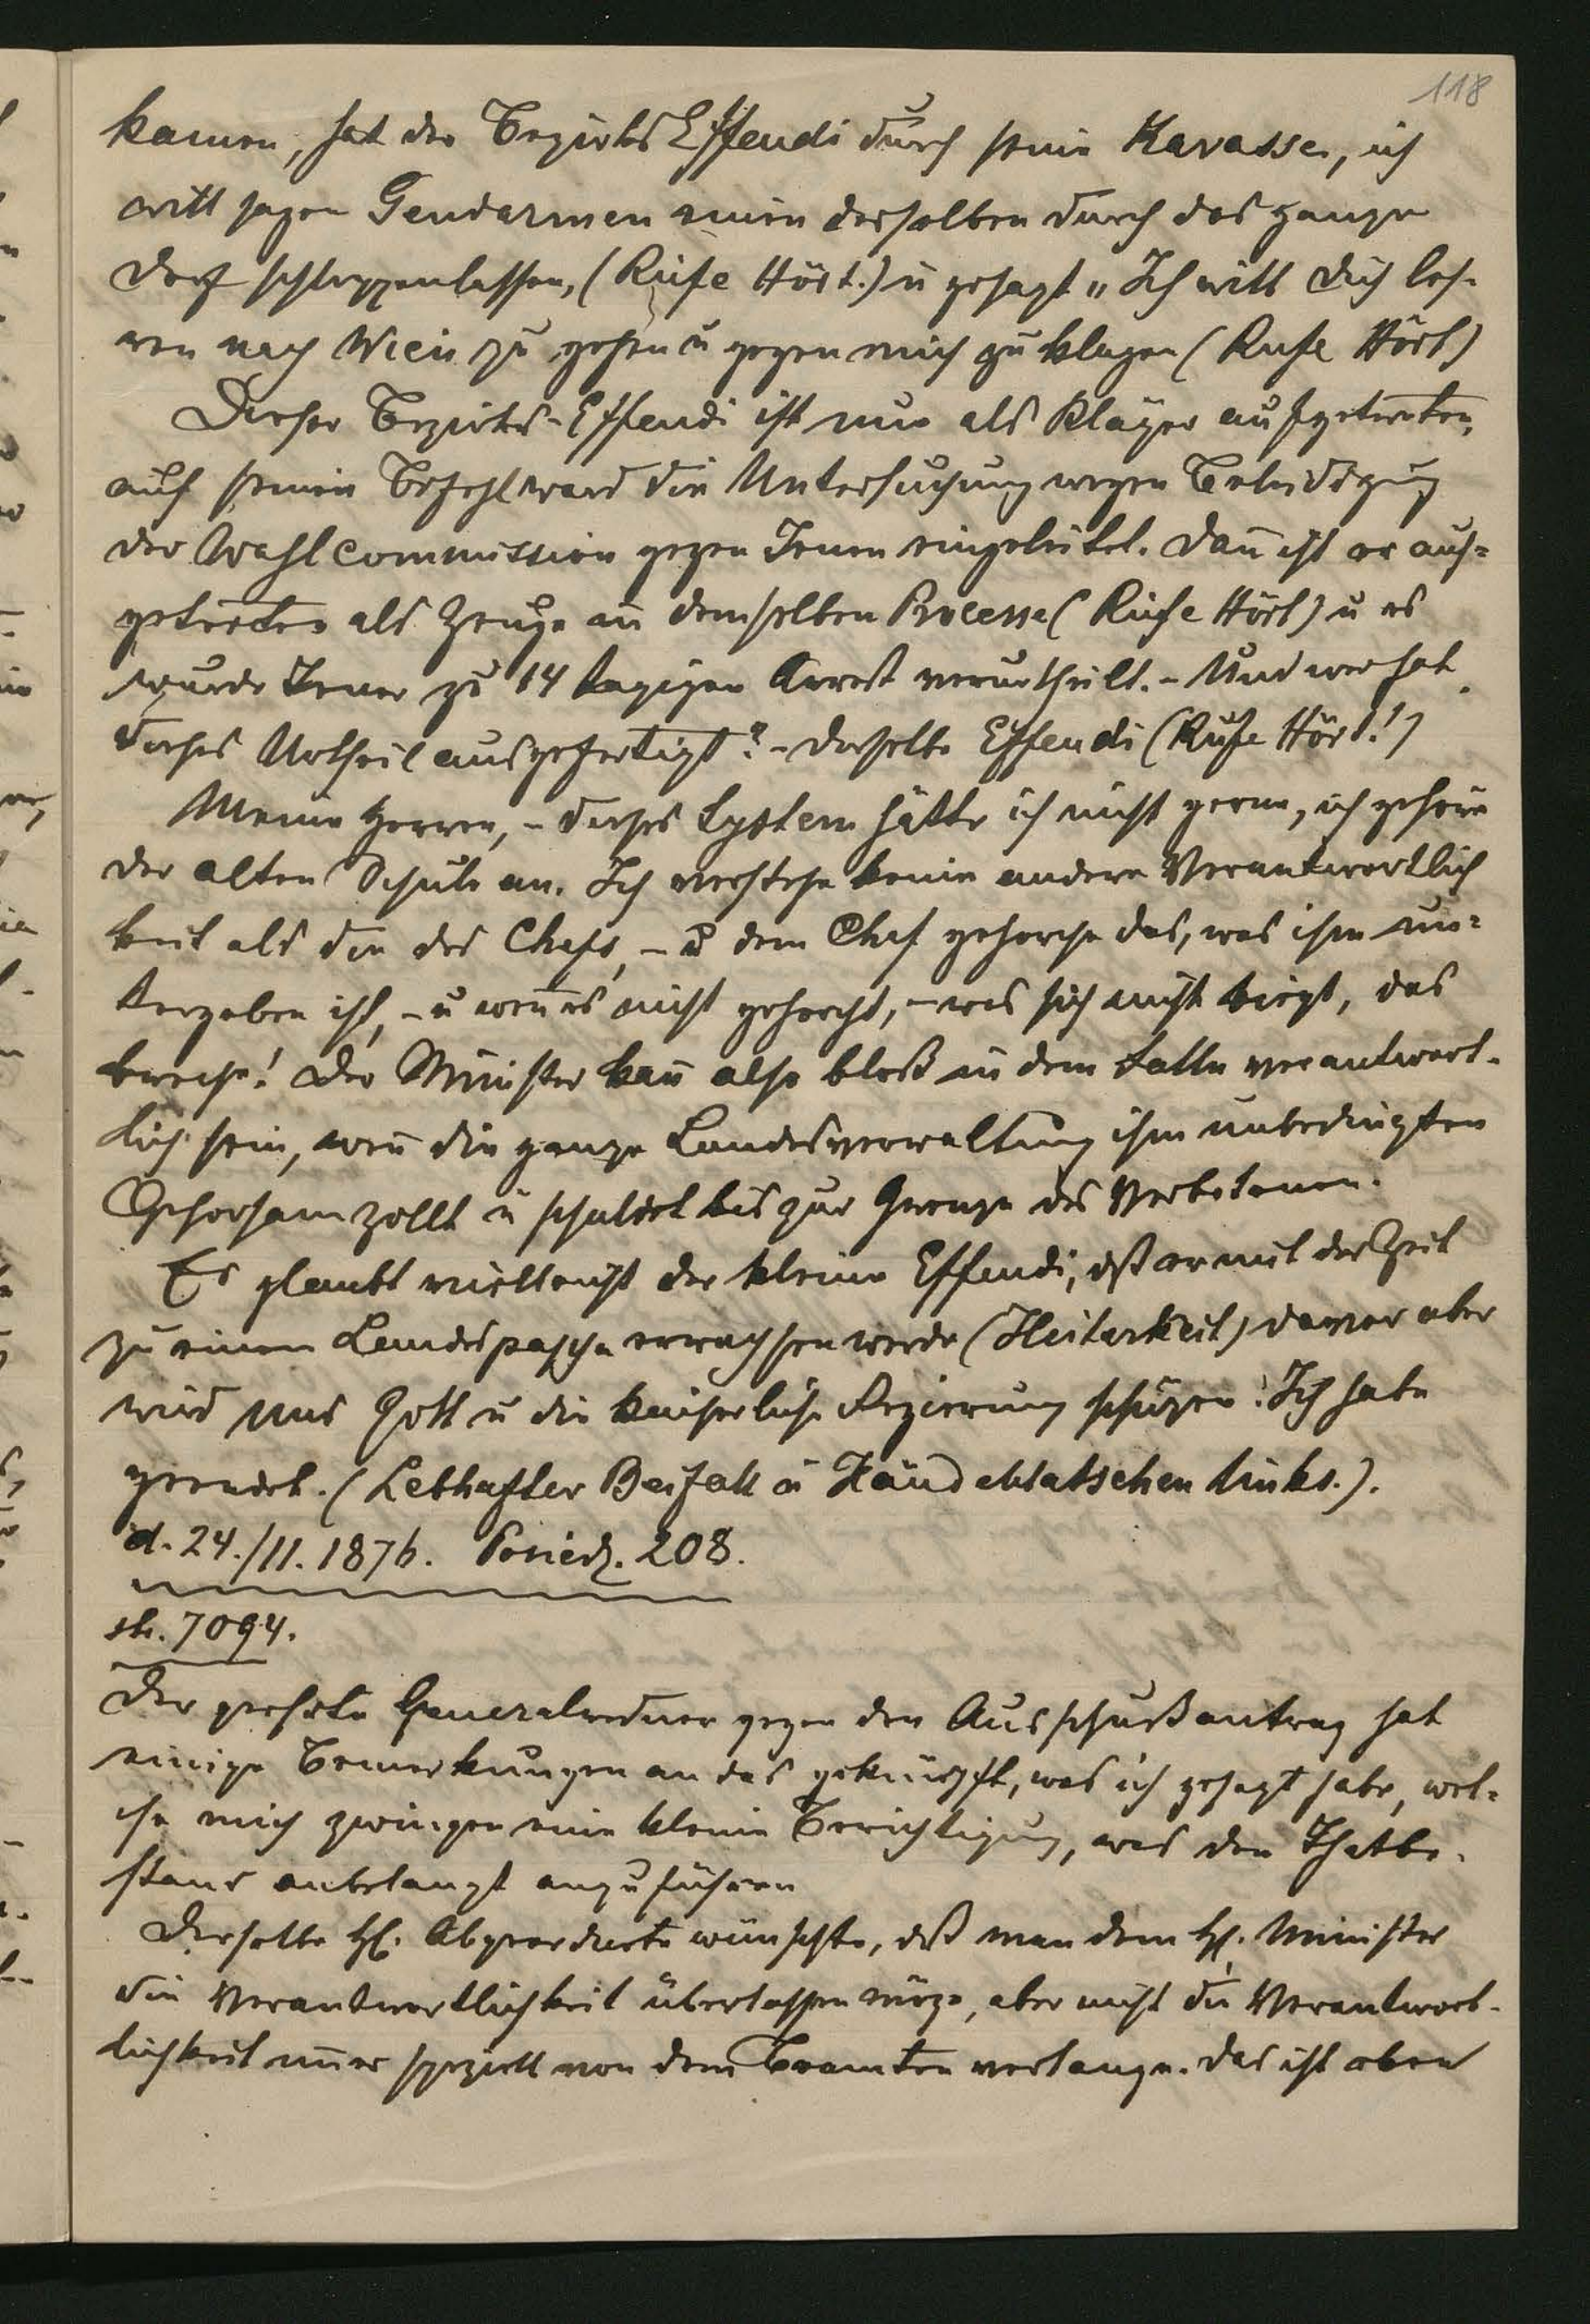 118
kamen, hat der Bezirks Effendi durch seine Kavasse, ich
will sagen Gendarmen einen derselben durch das ganze
Dorf schleppenlassen, (Rufe Hört.) u gesagt „Ich will dich leh-
ren nach Wien zu gehen u gegen mich zu klagen (Rufe Hört)
Dieser Bezirks-Effendi ist nun als Kläger aufgetreten,
auf seinen Befehl ward die Untersuchung wegen Beleidigung
der Wahlcommission gegen Jenen eingeleitet. Dañ ist er auf=
getreten als Zeuge in demselben Processe (Rufe Hört) u es
wurde Jener zu 14 tagigen Arrest verurtheilt. – Und wer hat
dieses Urtheil ausgefertigt? – Derselbe Effendi (Rufe Hört!)
Meine Herren, – dieses System hätte ich nicht gerne, ich gehöre
der alten Schule an. Ich verstehe keine andere Verantwortlich
keit als die des Chefs, – u dem Chef gehorche das, was ihm un=
tergeben ist, – u weñ es nicht gehorcht, – was sich nicht biegt, das
breche! Der Minister kañ also bloß in dem Falle verantwort-
lich sein, weñ die ganze Landesverwaltung ihm unbedingten
Gehorsam zollt u schuldet bis zur Grenze des Verbotenen.
Es glaubt vielleicht der kleine Effendi, dß er mit der Zeit
zu einem Landespascha erwachsen werde (Heiterkeit) davor aber
wird uns Gott u die kaiserliche Regierung schüzen! Ich habe
geendet. (Lebhafter Beifall u Händeklatschen links.).
d. 24./11. 1876. Posiedz. 208.
str. 7094.
Der geehrte Generalredner gegen den Ausschußantrag hat
einige Bemerkungen an das geknüpft, was ich gesagt habe, wel-
che mich zwingen eine kleine Berichtigung, was den Thatbe-
stand anbelangt anzuführen
Derselbe H. Abgeordnete wünschte, dß man dem H. Minister
die Verantwortlichkeit überlassen möge, aber nicht die Verantwort-
lichkeit im̄er speziell von dem Beamten verlange. Das ist eben